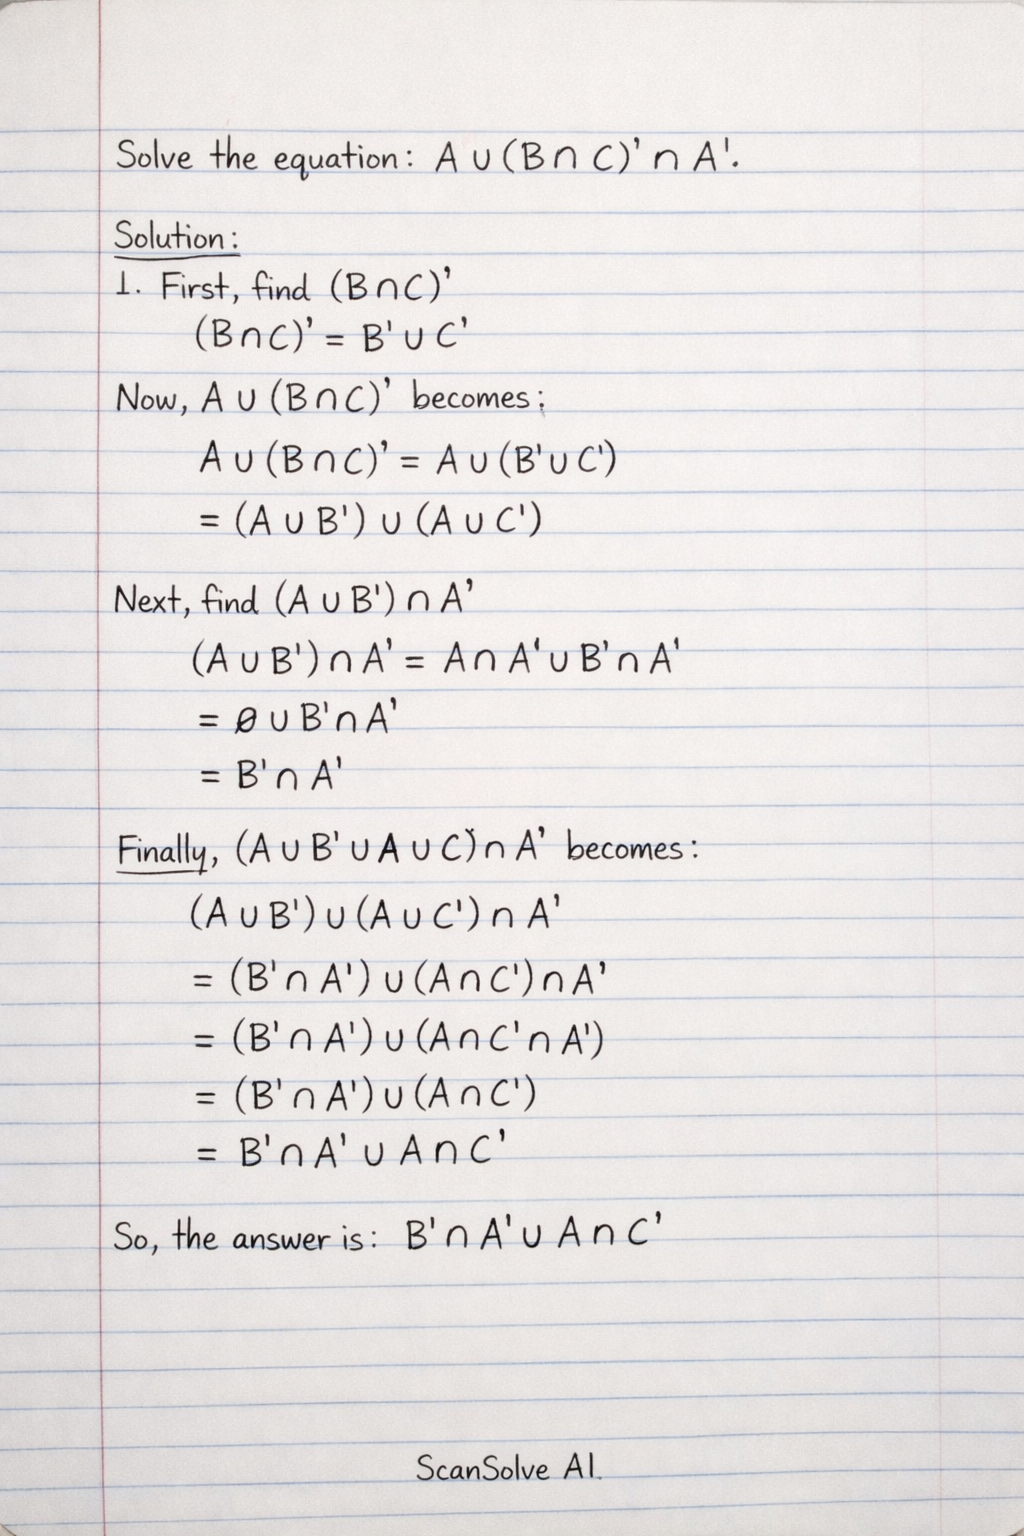 Solve the equation: A ∪ (B ∩ C)' ∩ A'.
Solution:
1. First, find (B ∩ C)'
(B ∩ C)' = B' ∪ C'
Now, A ∪ (B ∩ C)' becomes:
A ∪ (B ∩ C)' = A ∪ (B' ∪ C')
= (A ∪ B') ∪ (A ∪ C')
Next, find (A ∪ B') ∩ A'
(A ∪ B') ∩ A' = A ∩ A' ∪ B' ∩ A'
= ∅ ∪ B' ∩ A'
= B' ∩ A'
Finally, (A ∪ B' ∪ A ∪ C') ∩ A' becomes:
(A ∪ B') ∪ (A ∪ C') ∩ A'
= (B' ∩ A') ∪ (A ∩ C') ∩ A'
= (B' ∩ A') ∪ (A ∩ C' ∩ A')
= (B' ∩ A') ∪ (A ∩ C')
= B' ∩ A' ∪ A ∩ C'
So, the answer is: B' ∩ A' ∪ A ∩ C'
ScanSolve AI.